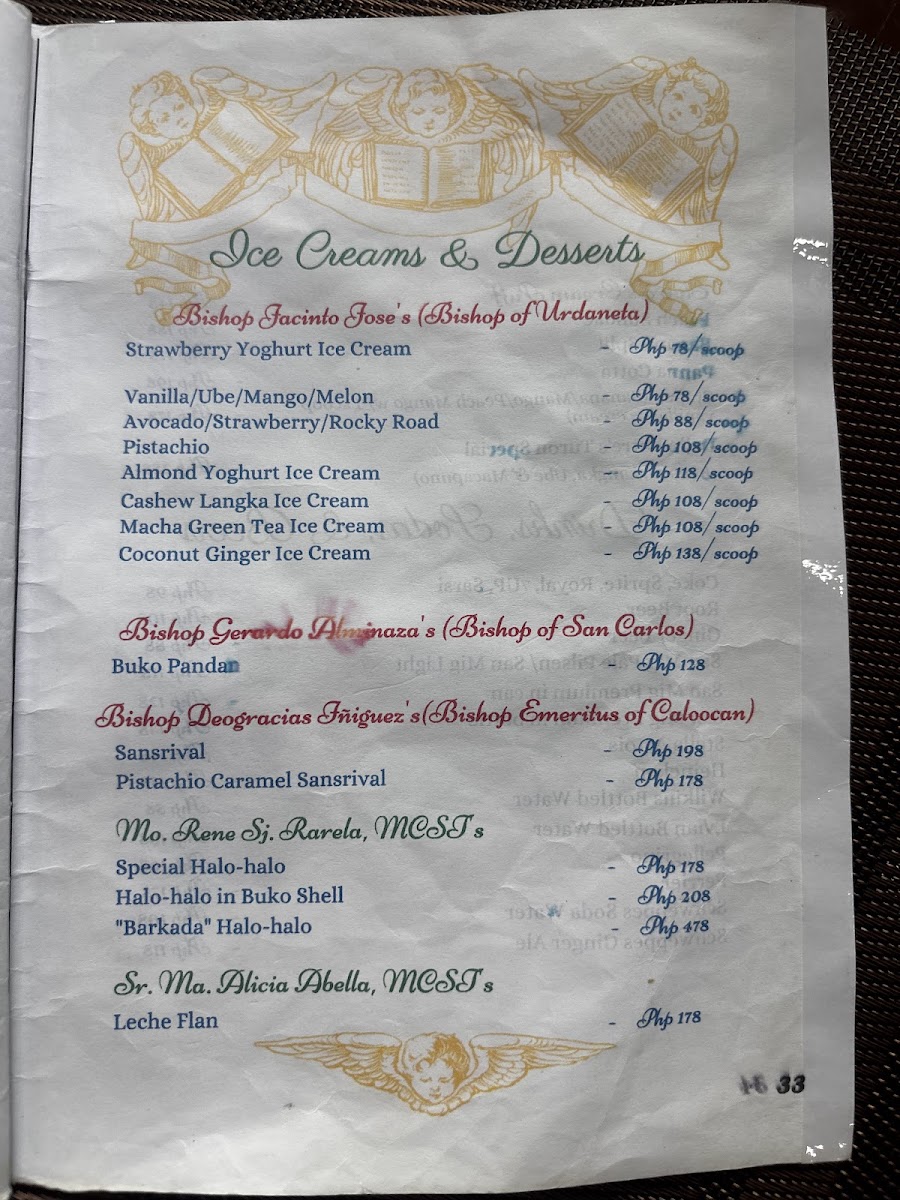 Ice Creams & Desserts
Bishop Jacinto Jose's (Bishop of Urdaneta)
Strawberry Yoghurt Ice Cream - Php 78/scoop
Vanilla/Ube/Mango/Melon - Php 78/scoop
Avocado/Strawberry/Rocky Road - Php 88/scoop
Pistachio - Php 108/scoop
Almond Yoghurt Ice Cream - Php 118/scoop
Cashew Langka Ice Cream - Php 108/scoop
Macha Green Tea Ice Cream - Php 108/scoop
Coconut Ginger Ice Cream - Php 138/scoop
Bishop Gerardo Alminaza's (Bishop of San Carlos)
Buko Pandan - Php 128
Bishop Deogracias Iñiguez's(Bishop Emeritus of Caloocan)
Sansrival - Php 198
Pistachio Caramel Sansrival - Php 178
Mo. Rene Sj. Rarela, MCST's
Special Halo-halo - Php 178
Halo-halo in Buko Shell - Php 208
"Barkada" Halo-halo - Php 478
Sr. Ma. Alicia Abella, MCST's
Leche Flan - Php 178
33